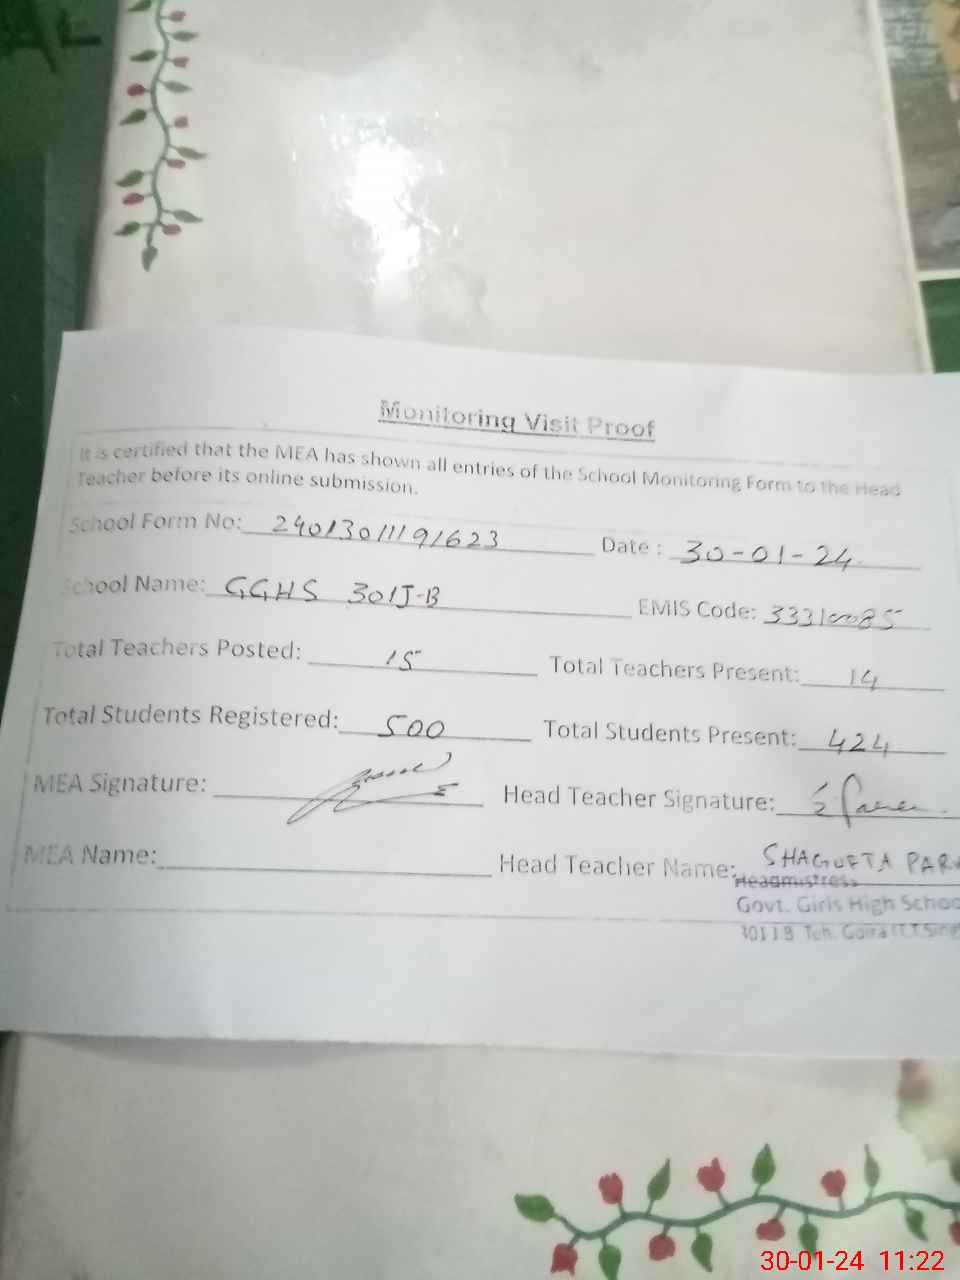 Monitoring Visit Proof
It is certified that the MEA has shown all entries of the School Monitoring Form to the Head
Teacher before its online submission.
School Form No: 24013011191623 Date : 30-01-24
School Name: GGHS 301J-B EMIS Code: 33310085
Total Teachers Posted: 15 Total Teachers Present: 14
Total Students Registered: 500 Total Students Present: 424
MEA Signature: Head Teacher Signature:
MEA Name: Head Teacher Name: SHAGUFTA
Headmistress
Govt. Girls High Schoo
301 J B Teh. Gojra (T.T.Sing
30-01-24 11:22